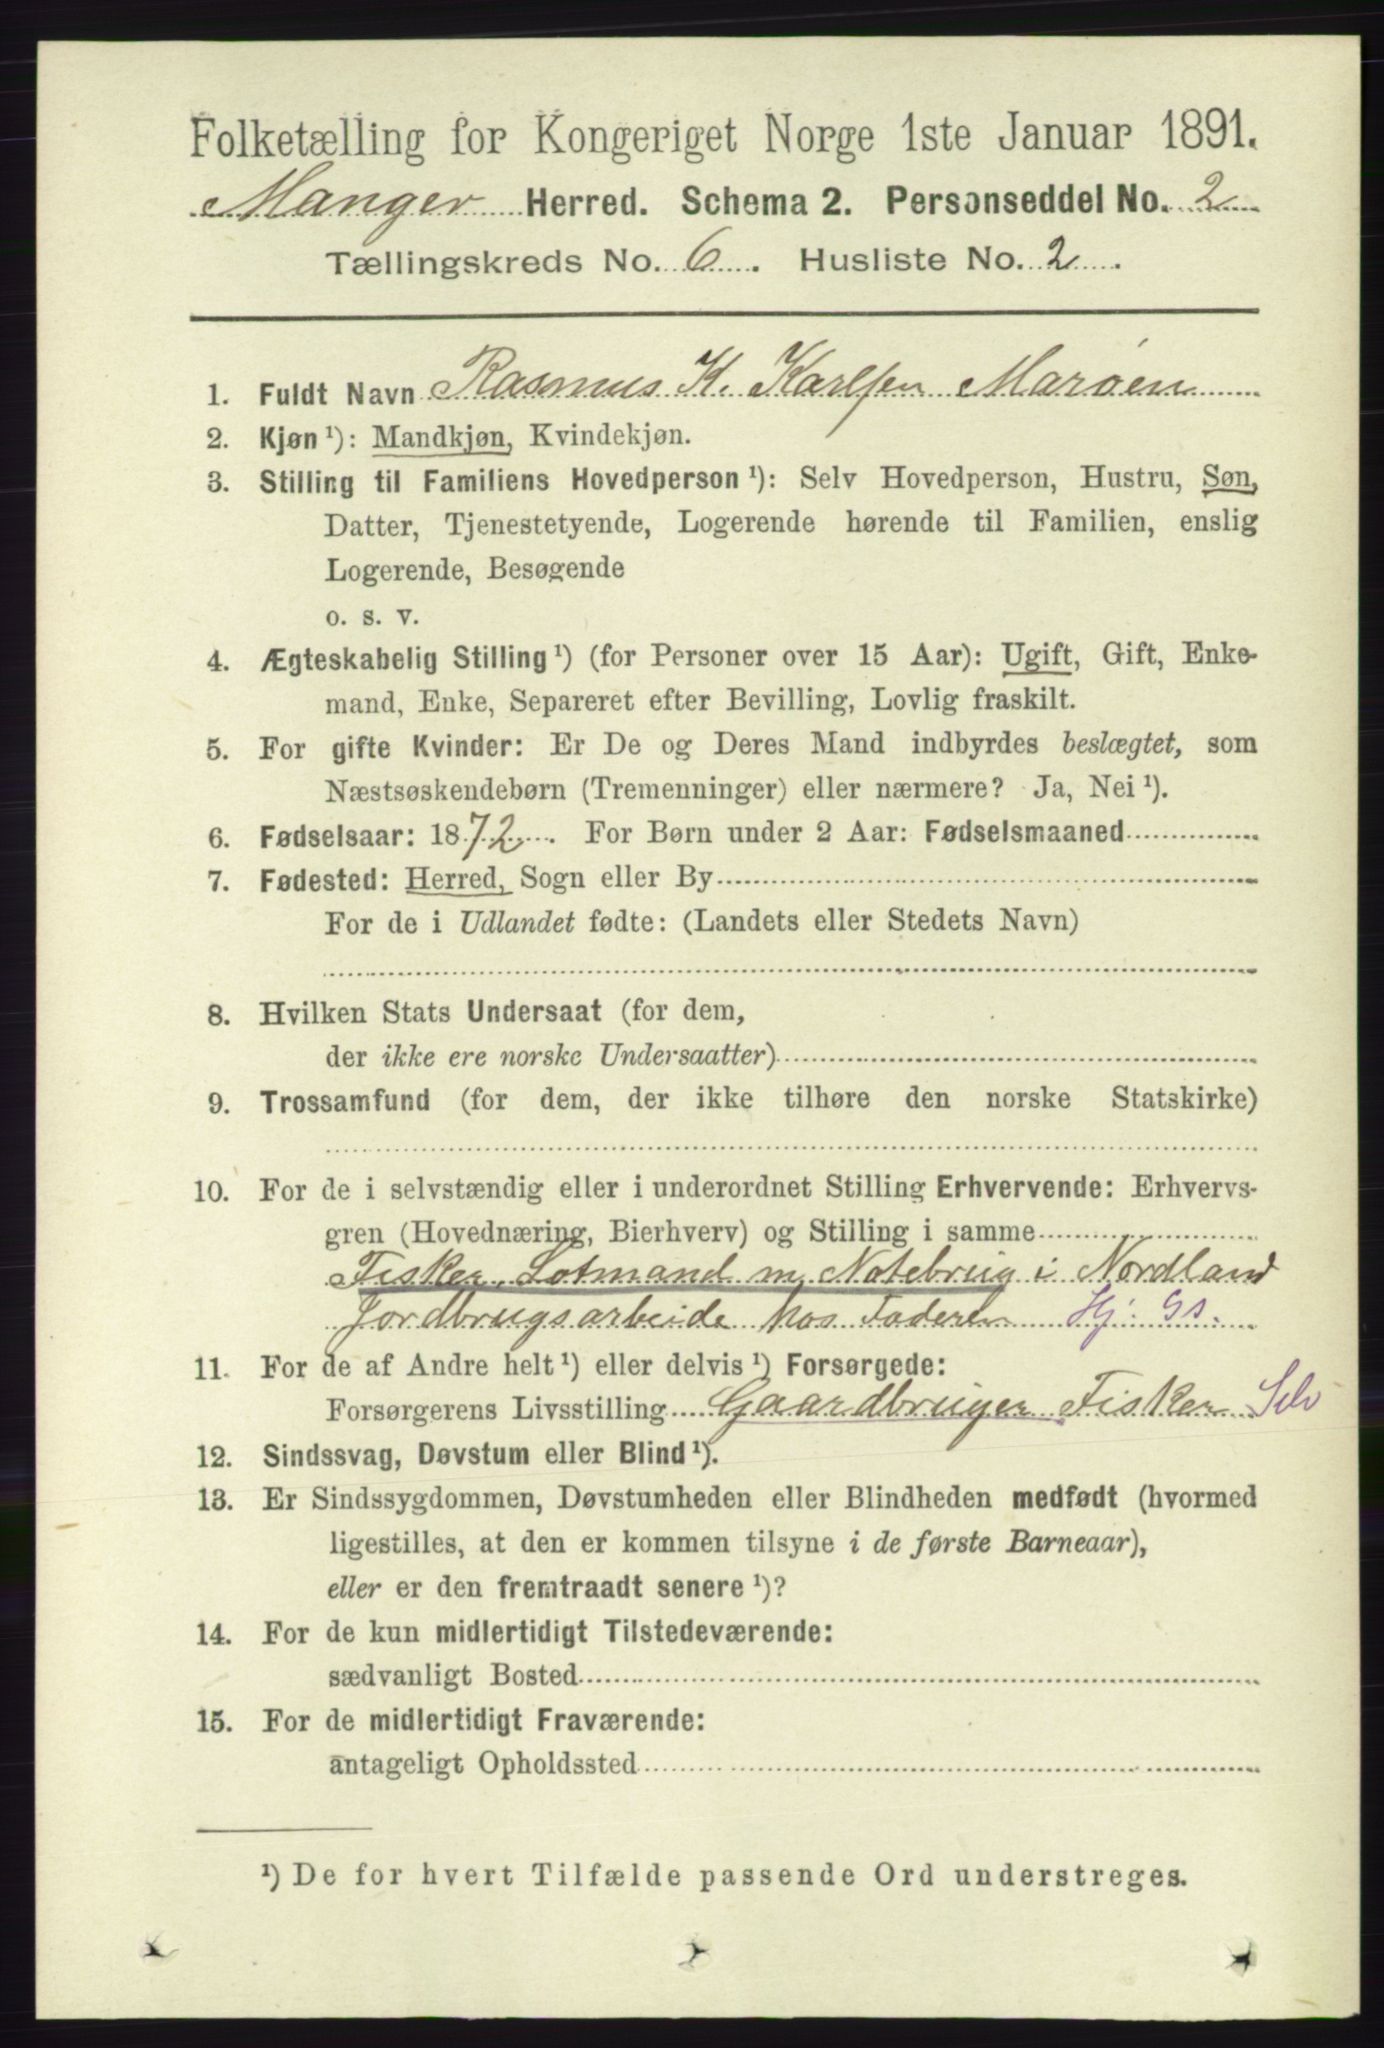 Folketælling for Kongeriget Norge 1ste Januar 1891.
Manger Herred. Schema 2. Personseddel No. 2
Tællingskreds No. 6. Husliste No. 2.
1. Fuldt Navn Rasmus K. Karlsen Marøen
2. Kjøn ¹): Mandkjøn, Kvindekjøn.
3. Stilling til Familiens Hovedperson ¹): Selv Hovedperson, Hustru, Søn,
Datter, Tjenestetyende, Logerende hørende til Familien, enslig
Logerende, Besøgende
o. s. v.
4. Ægteskabelig Stilling ¹) (for Personer over 15 Aar): Ugift, Gift, Enke-
mand, Enke, Separeret efter Bevilling, Lovlig fraskilt.
5. For gifte Kvinder: Er De og Deres Mand indbyrdes beslægtet, som
Næstsøskendebørn (Tremenninger) eller nærmere? Ja, Nei ¹).
6. Fødselsaar: 1872. For Børn under 2 Aar: Fødselsmaaned
7. Fødested: Herred, Sogn eller By
For de i Udlandet fødte: (Landets eller Stedets Navn)
8. Hvilken Stats Undersaat (for dem,
der ikke ere norske Undersaatter)
9. Trossamfund (for dem, der ikke tilhøre den norske Statskirke)
10. For de i selvstændig eller i underordnet Stilling Erhvervende: Erhvervs-
gren (Hovednæring, Bierhverv) og Stilling i samme
Fisker, Lotmand m Notebrug i Nordland
Jordbrugsarbeide hos Faderen Hj: Gs.
11. For de af Andre helt ¹) eller delvis ¹) Forsørgede:
Forsørgerens Livsstilling Gaardbruger Fisker Selv
12. Sindssvag, Døvstum eller Blind ¹).
13. Er Sindssygdommen, Døvstumheden eller Blindheden medfødt (hvormed
ligestilles, at den er kommen tilsyne i de første Barneaar),
eller er den fremtraadt senere ¹)?
14. For de kun midlertidigt Tilstedeværende:
sædvanligt Bosted
15. For de midlertidigt Fraværende:
antageligt Opholdssted
¹) De for hvert Tilfælde passende Ord understreges.